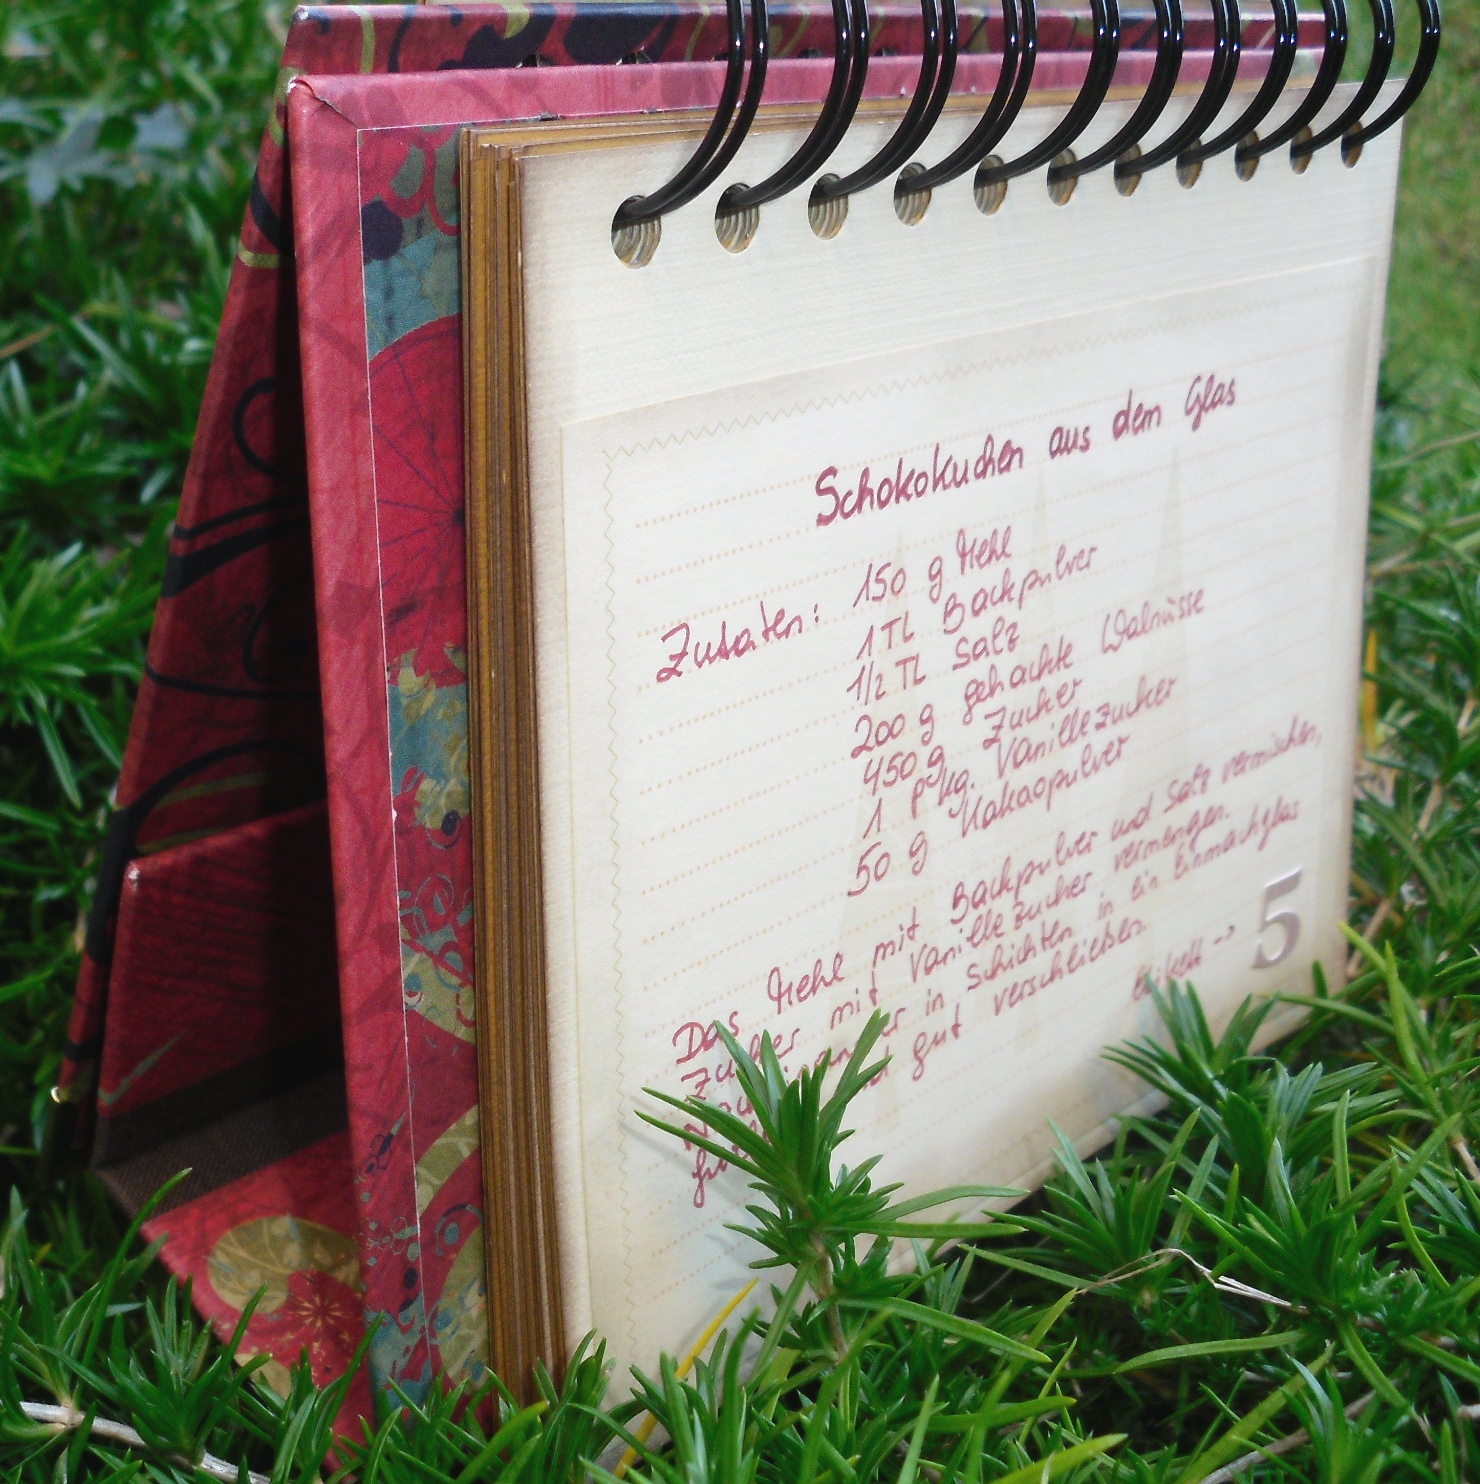 Schokokuchen aus dem Glas
Zutaten: 150 g Mehl
1 TL Backpulver
1/2 TL Salz
200 g gehackte Walnüsse
450 g Zucker
1 Pkg. Vanillezucker
50 g Kakaopulver
Das Mehl mit Backpulver und Salz vermischen,
Zucker mit Vanillezucker vermengen.
in Schichten in ein Einmachglas
gut verschließen.
Etikett ->
5